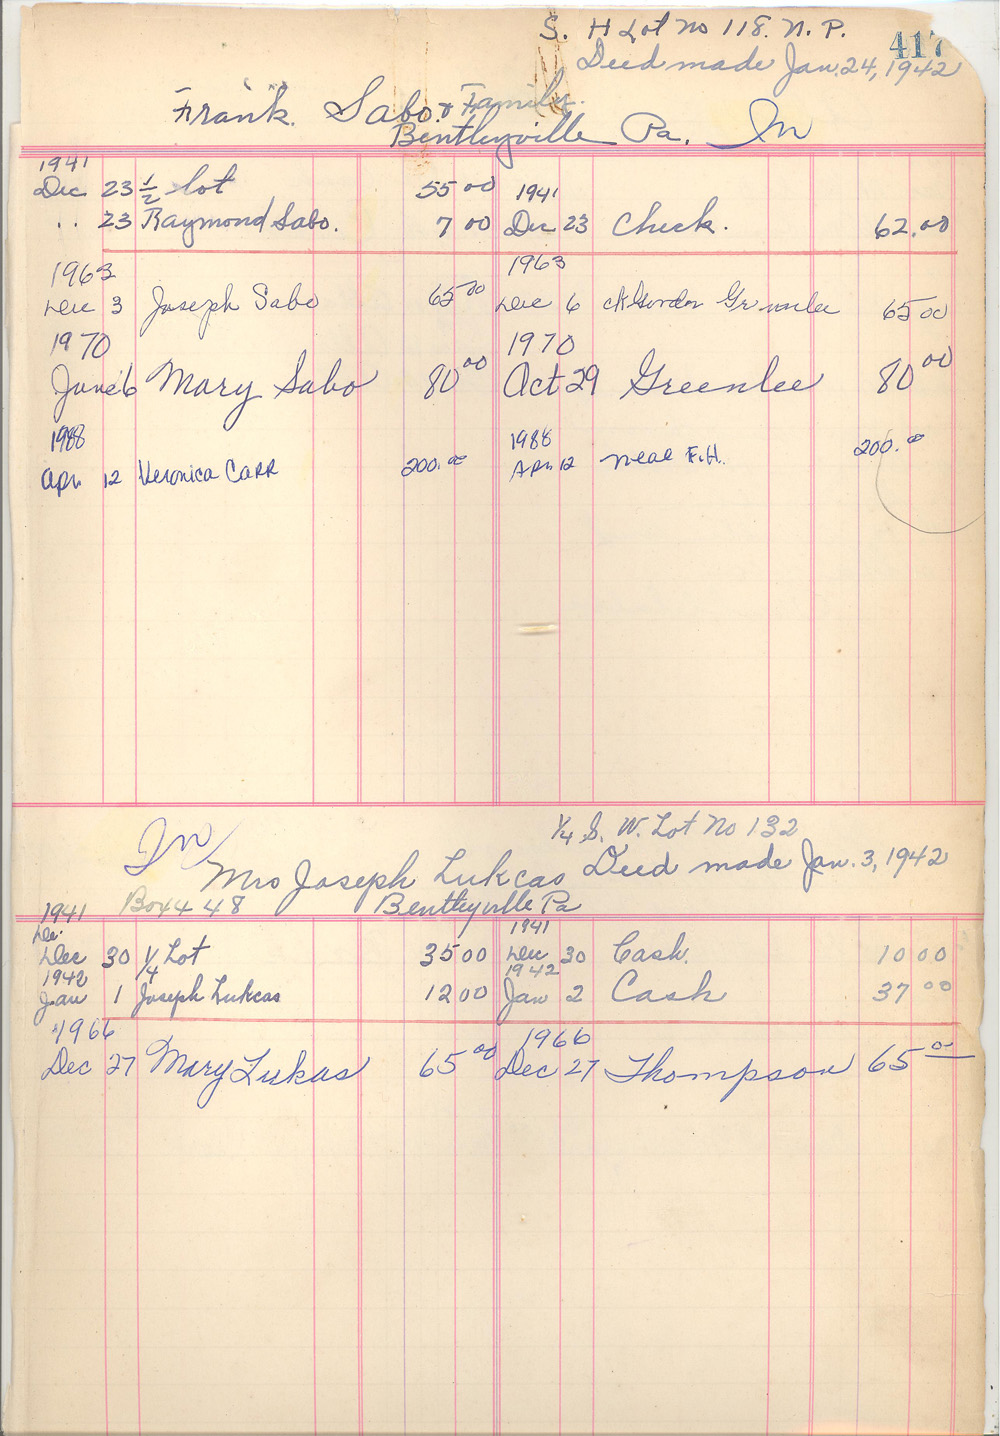 S. H Lot No 118. N. P.
417
Deed made Jan. 24, 1942
Frank. Sabo. & Family.
Bentleyville Pa. In
1941 
Dec 23 1/2 Lot 55 00 1941
.. 23 Raymond Sabo. 7 00 Dec 23 Check. 62.00
1963 1963
Dec 3 Joseph Sabo 65 00 Dec 6 ck Gordon Greenlee 65 00
1970 1970
June 6 Mary Sabo 80 00 Oct 29 Greenlee 80 00
1988 1988
Apr. 12 Veronica Carr 200.00 Apr 12 Neal F.H. 200.00
In 1/4 S. W. Lot No 132
Mrs Joseph Lukcas Deed made Jan. 3, 1942
Box 448 Bentleyville Pa
1941 1941
Dec.
Dec 30 1/4 Lot 35 00 Dec 30 Cash. 10 00
1942 1942
Jan 1 Joseph Lukcas 12 00 Jan 2 Cash 37 00
1966 1966
Dec 27 Mary Lukas 65 00 Dec 27 Thompson 65 00